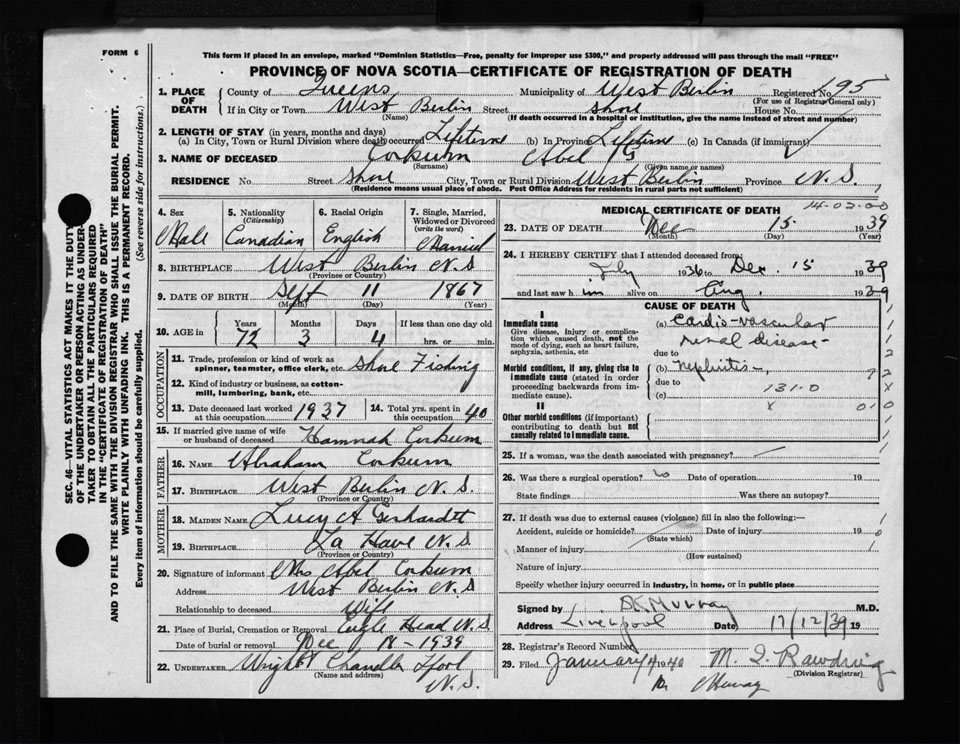 FORM 6
This form if placed in an envelope, marked "Dominion Statistics—Free, penalty for improper use $300," and properly addressed will pass through the mail "FREE"
PROVINCE OF NOVA SCOTIA—CERTIFICATE OF REGISTRATION OF DEATH
1. PLACE OF DEATH County of Queens Municipality of West Berlin Registered No. 195
(For use of Registrar General only)
If in City or Town West Berlin Street Shore House No.
(Name) (If death occurred in a hospital or institution, give the name instead of street and number)
2. LENGTH OF STAY (in years, months and days)
(a) In City, Town or Rural Division where death occurred Lifetime (b) In Province Lifetime (c) In Canada (if immigrant)
3. NAME OF DECEASED Corkum Abel
(Surname) (Given name or names)
RESIDENCE No. Street Shore City, Town or Rural Division West Berlin Province N.S.
(Residence means usual place of abode. Post Office Address for residents in rural parts not sufficient)
4. Sex Male
5. Nationality (Citizenship) Canadian
6. Racial Origin English
7. Single, Married, Widowed or Divorced (write the word) Married
8. BIRTHPLACE West Berlin N.S
(Province or Country)
9. DATE OF BIRTH Sept 11 1867
(Month) (Day) (Year)
10. AGE in Years Months Days If less than one day old
72 3 4 hrs. or min.
OCCUPATION
11. Trade, profession or kind of work as spinner, teamster, office clerk, etc. Shore Fishing
12. Kind of industry or business, as cotton-mill, lumbering, bank, etc.
13. Date deceased last worked at this occupation 1937
14. Total yrs. spent in this occupation 40
15. If married give name of wife or husband of deceased Hannah Corkum
FATHER
16. NAME Abraham Corkum
17. BIRTHPLACE West Berlin N.S.
(Province or Country)
MOTHER
18. MAIDEN NAME Lucy A Gerhardt
19. BIRTHPLACE La Have N.S
(Province or Country)
20. Signature of informant Mrs Abel Corkum
Address West Berlin N.S
Relationship to deceased Wife
21. Place of Burial, Cremation or Removal Eagle Head N.S.
Date of burial or removal Dec 18 - 1939
22. UNDERTAKER Wright Chandler Lpool
(Name and address) N.S.
14-02-00
MEDICAL CERTIFICATE OF DEATH
23. DATE OF DEATH Dec 15 1939
(Month) (Day) (Year)
24. I HEREBY CERTIFY that I attended deceased from:
July 1936 to Dec. 15 1939
and last saw h im alive on Aug. 1939
CAUSE OF DEATH
I
Immediate cause
Give disease, injury or complication which caused death, not the mode of dying, such as heart failure, asphyxia, asthenia, etc
(a) Cardio-vascular
renal disease-
due to
Morbid conditions, if any, giving rise to immediate cause (stated in order proceeding backwards from immediate cause).
(b) nephritis-
due to 131.0
(c)
II
Other morbid conditions (if important) contributing to death but not causally related to immediate cause.
25. If a woman, was the death associated with pregnancy?
26. Was there a surgical operation? no Date of operation 19
State findings Was there an autopsy?
27. If death was due to external causes (violence) fill in also the following:—
Accident, suicide or homicide? Date of injury 19
(State which)
Manner of injury
(How sustained)
Nature of injury
Specify whether injury occurred in industry, in home, or in public place
Signed by Murray M.D.
Address Liverpool Date 17/12/39 19
28. Registrar's Record Number
29. Filed January 1940
(Division Registrar)
SEC. 46—VITAL STATISTICS ACT MAKES IT THE DUTY
OF THE UNDERTAKER OR PERSON ACTING AS UNDERTAKER TO OBTAIN ALL THE PARTICULARS REQUIRED
IN THE "CERTIFICATE OF REGISTRATION OF DEATH"
AND TO FILE THE SAME WITH THE DIVISION REGISTRAR WHO SHALL ISSUE THE BURIAL PERMIT.
WRITE PLAINLY WITH UNFADING INK. THIS IS A PERMANENT RECORD.
Every item of information should be carefully supplied. (See reverse side for instructions.)